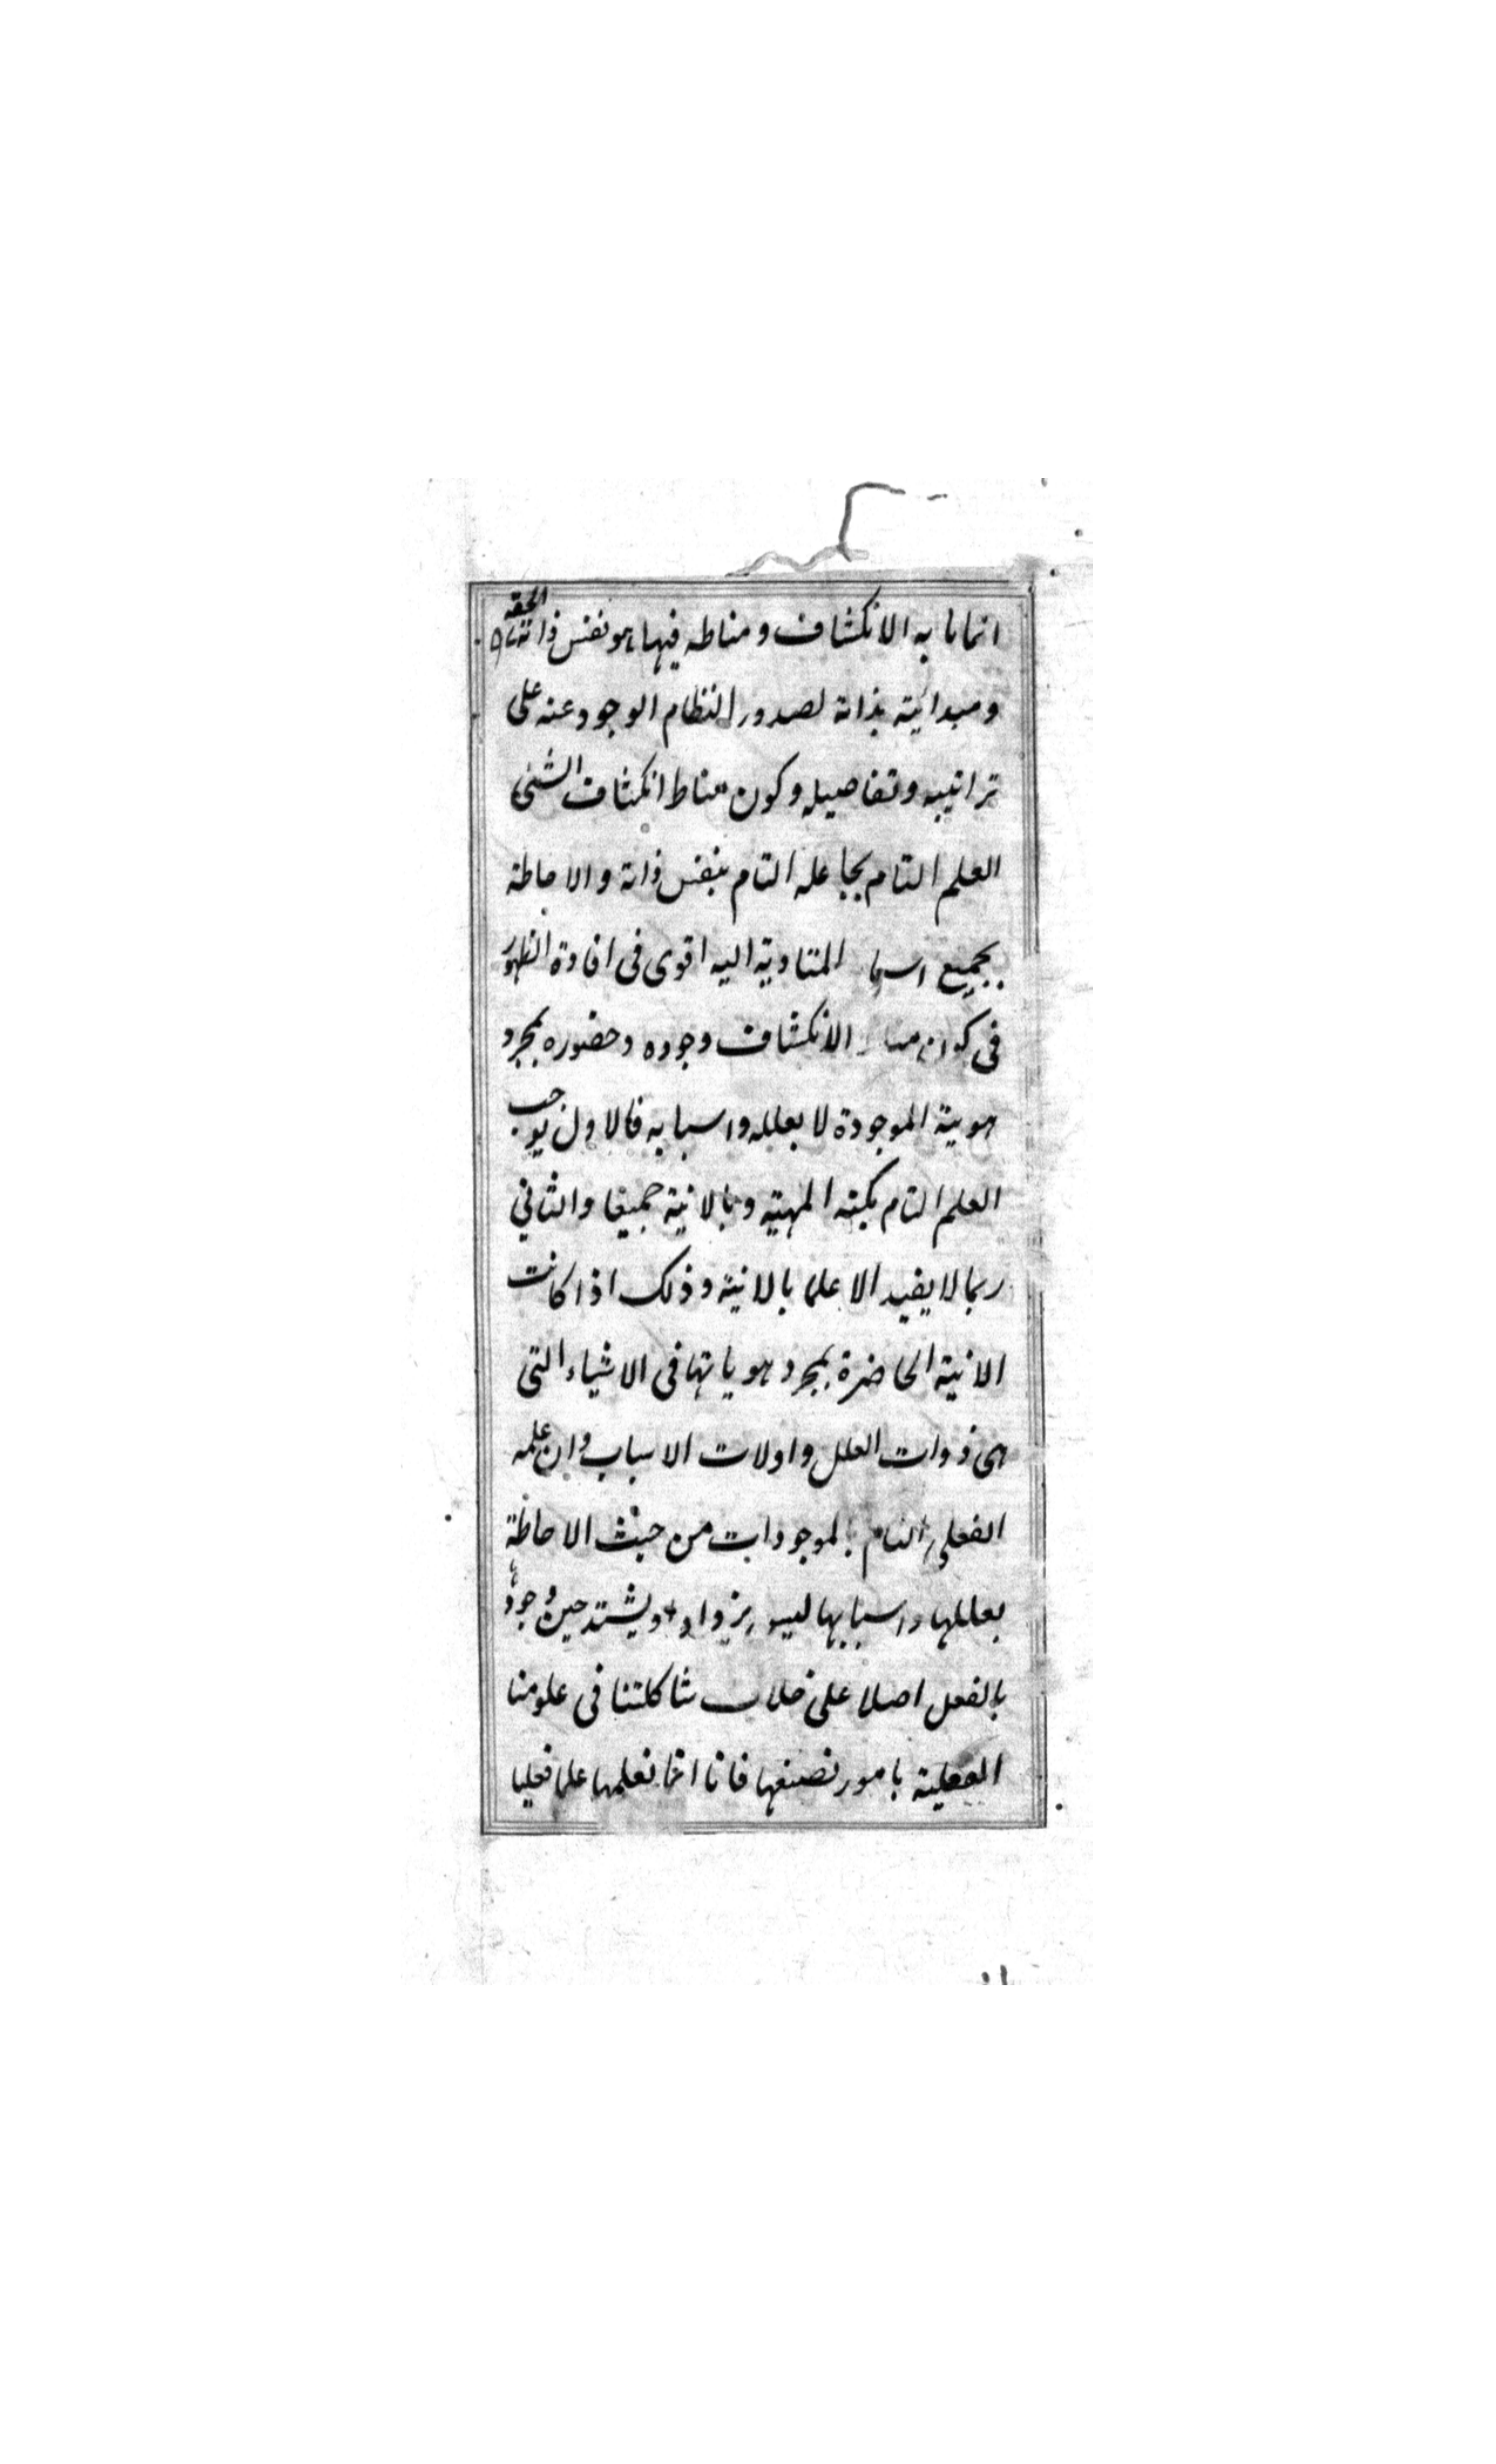 انما ما به الانكشاف ومناطه فيها هو نفس ذاته الحقة
ومبدائيته بذاته لصدور النظام الوجود عنه على
تراتيبه وتفاصيله وكون مناط انكشاف الشئ
العلم التام بجاعله التام بنفس ذاته والاحاطة
بجميع المتادية اليه اقوى فى افادة الظهور
فى الانكشاف وجوده وحضوره بمجرد
هويته الموجودة لا بعلله واسبابه فالاول يوجب
العلم التام بكنه المهية وبالانية جميعا والثاني
ربما لا يفيد الا علما بالانية وذلك اذا كانت
الانية الحاضرة بمجرد هوياتها فى الاشياء التى
هى ذوات العلل واولات الاسباب وان علمه
الفعلى التام بالموجودات من حيث الاحاطة
بعللها واسبابها ليس يزداد ويشتد حين وجودها
بالفعل اصلا على خلاف شاكلتنا فى علومنا
الفعلية بامور نصنعها فانا انما نعلمها علما فعليا